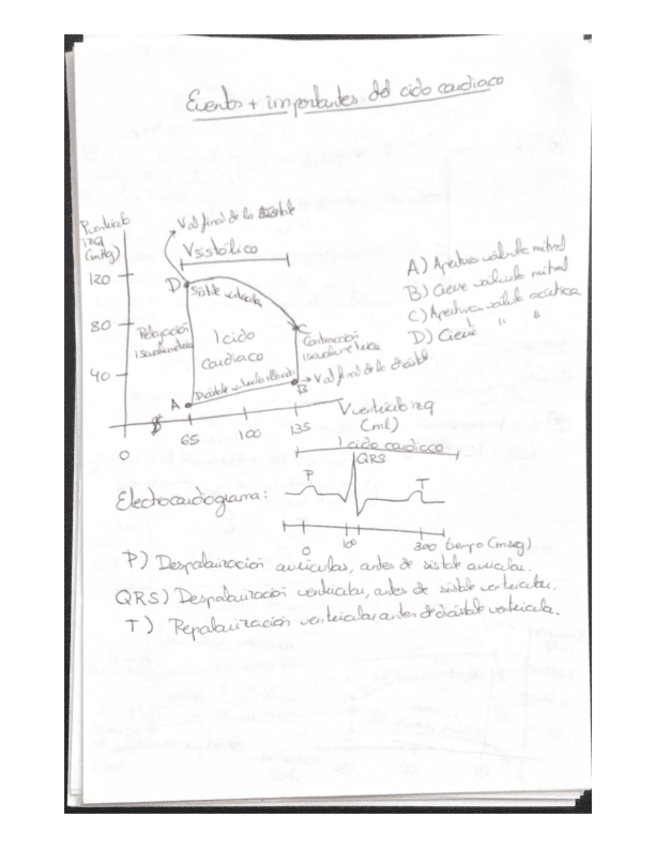 Eventos + importantes del ciclo cardiaco
Vol final de la sístole
P ventrículo
izq
(mmHg)
V sistólico
120
D
Sístole ventricular
80
Relajación
isovolumétrica
1 ciclo
cardiaco
C
Contracción
isovolumétrica
40
Diástole ventricular llenado
A
B
→ Vol final de la diástole
65
100
135
V ventrículo izq
(ml)
0
A) Apertura válvula mitral
B) Cierre válvula mitral
C) Apertura válvula aórtica
D) Cierre " "
1 ciclo cardiaco
P
QRS
T
Electrocardiograma:
0
100
300 tiempo (mseg)
P) Despolarización auricular, antes de sístole auricular.
QRS) Despolarización ventricular, antes de sístole ventricular.
T) Repolarización ventricular antes de diástole ventricular.